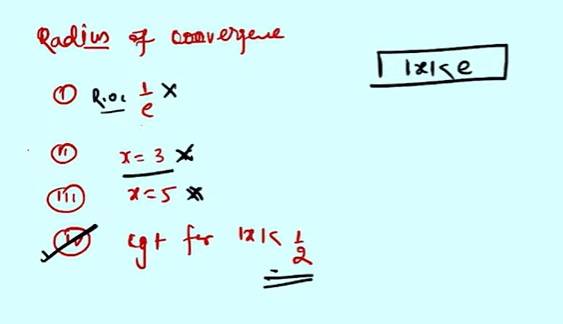 Radius of convergene
|x| < e
(i) R.O.C 1/e ×
(ii) x = 3 ×
(iii) x = 5 ×
(iv) cgt for |x| < 1/2